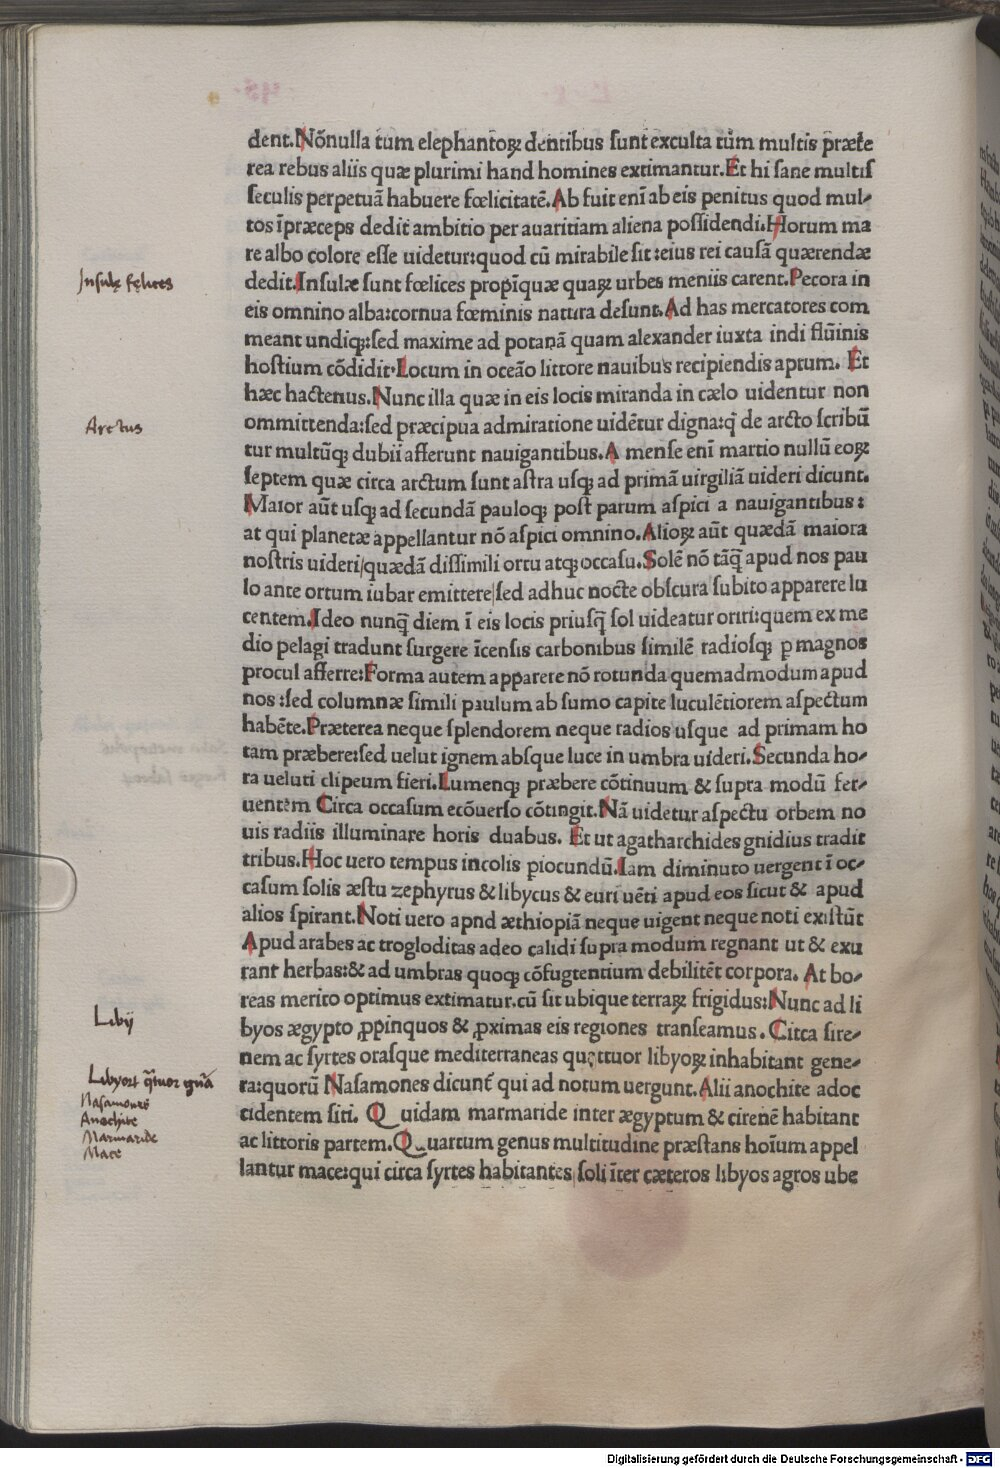 dent.Nõnulla tum elephantoꝝ dentibus ſunt exculta tũm multis præte
rea rebus aliis quæ plurimi hand homines extimantur.Et hi ſane multiſ
ſeculis perpetuã habuere fœlicitatẽ.Ab fuit enĩ ab eis penitus quod mul⸗
tos ĩpræceps dedit ambitio per auaritiam aliena poſſidendi.Horum ma
re albo colore eſſe uidetur:quod cũ mirabile ſit:eius rei cauſã quærendæ
Inſulę fęlices
dedit.Inſulæ ſunt fœlices propĩquæ quaꝝ urbes meniis carent.Pecora in
eis omnino alba:cornua fœminis natura deſunt.Ad has mercatores com
meant undiqꝫ:ſed maxime ad potanã quam alexander iuxta indi flũinis
hoſtium cõdidit.Locum in oceão littore nauibus recipiendis aptum. Et
hæc hactenus.Nunc illa quæ in eis locis miranda in cælo uidentur non
Arctus
ommittenda:ſed præcipua admiratione uidẽtur digna:q̃ de arcto ſcribũ
tur multũqꝫ dubii afferunt nauigantibus.A menſe enĩ martio nullũ eoꝝ
ſeptem quæ circa arctum ſunt aſtra uſqꝫ ad primã uirgiliã uideri dicunt.
Maior aũt uſqꝫ ad ſecundã pauloqꝫ poſt parum aſpici a nauigantibus:
at qui planetæ appellantur nõ aſpici omnino.Alioꝝ aũt quædã maiora
noſtris uideri/quædã diſſimili ortu atqꝫ occaſu.Solẽ nõ tãq̃ apud nos pau
lo ante ortum iubar emittere/ſed adhuc nocte obſcura ſubito apparere lu
centem.Ideo nunq̃ diem ĩ eis locis priuſq̃ ſol uideatur oriri:quem ex me
dio pelagi tradunt ſurgere ĩcenſis carbonibus ſimilẽ radioſqꝫ p magnos
procul afferre:Forma autem apparere nõ rotunda quemadmodum apud
nos:ſed columnæ ſimili paulum ab ſumo capite luculẽtiorem aſpectum
habẽte.Præterea neque ſplendorem neque radios uſque ad primam ho
tam præbere:ſed uelut ignem abſque luce in umbra uideri.Secunda ho⸗
ra ueluti clipeum fieri.Lumenqꝫ præbere cõtinuum & ſupra modũ fer⸗
uentem Circa occaſum ecõuerſo cõtingit.Nã uidetur aſpectu orbem no
uis radiis illuminare horis duabus. Et ut agatharchides gnidius tradit
tribus.Hoc uero tempus incolis piocundũ.Iam diminuto uergent ĩ oc⸗
caſum ſolis æſtu zephyrus & libycus & euri uẽti apud eos ſicut & apud
alios ſpirant.Noti uero apnd æthiopiã neque uigent neque noti exiſtũt
Apud arabes ac trogloditas adeo calidi ſupra modum regnant ut & exu
rant herbas:& ad umbras quoqꝫ cõfugtentium debilitẽt corpora. At bo⸗
reas merito optimus extimatur.cũ ſit ubique terraꝝ frigidus:Nunc ad li
Libij
byos ægypto ꝓpinquos & ꝓximas eis regiones tranſeamus. Circa ſire⸗
nem ac ſyrtes oraſque mediterraneas quattuor libyoꝝ inhabitant gene⸗
Libyoꝝ q̃tuor gña
ra:quorũ Naſamones dicunt̃ qui ad notum uergunt.Alii anochite ad oc
Naſamones
Anochite
cidentem ſiti. Quidam marmaride inter ægyptum & cirenẽ habitant
Marmaride
ac littoris partem.Quartum genus multitudine præſtans hoĩum appel
Mace
lantur mace:qui circa ſyrtes habitantes/ſoli ĩter cæteros libyos agros ube
Digitalisierung gefördert durch die Deutsche Forschungsgemeinschaft - DFG